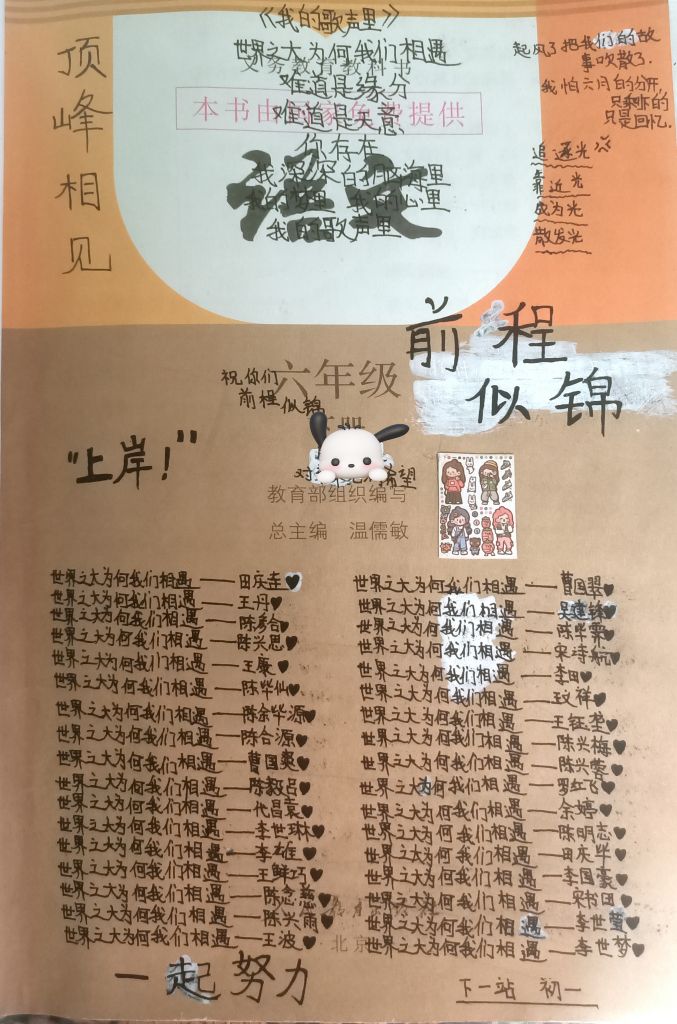 《我的歌声里》
世界之大为何我们相遇
义务教育教科书
难道是缘分
本书由国家免费提供
难道是天意
你存在
我深深的脑海里
我的梦里 我的心里
我的歌声里
语文
顶峰相见
起风了把我们的故
事吹散了.
我怕六月白的分开,
只剩下的
只是回忆.
追逐光
靠近光
成为光
散发光
前程
似锦
六年级
祝你们
前程似锦
"上岸!"
希望
教育部组织编写
总主编 温儒敏
世界之大为何我们相遇——田庆连♥
世界之大为何我们相遇——王丹♥
世界之大为何我们相遇——陈彦合♥
世界之大为何我们相遇——陈兴思♥
世界之大为何我们相遇——王廉♥
世界之大为何我们相遇——陈华仙♥
世界之大为何我们相遇——陈余华源♥
世界之大为何我们相遇——陈合源♥
世界之大为何我们相遇——曹国爽♥
世界之大为何我们相遇——陈毅吕♥
世界之大为何我们相遇——代昌袁♥
世界之大为何我们相遇——李世琳♥
世界之大为何我们相遇——李雄♥
世界之大为何我们相遇——王鲜巧♥
世界之大为何我们相遇——陈念慈♥
世界之大为何我们相遇——陈兴雨♥
世界之大为何我们相遇——王波♥
世界之大为何我们相遇——曹国翠♥
世界之大为何我们相遇——吴建锋♥
世界之大为何我们相遇——陈华粟♥
世界之大为何我们相遇——宋诗航♥
世界之大为何我们相遇——李田♥
世界之大为何我们相遇——王义祥♥
世界之大为何我们相遇——王钰垄♥
世界之大为何我们相遇——陈兴梅♥
世界之大为何我们相遇——陈兴蓉♥
世界之大为何我们相遇——罗红飞♥
世界之大为何我们相遇——余婷♥
世界之大为何我们相遇——陈明志♥
世界之大为何我们相遇——田庆华♥
世界之大为何我们相遇——李国豪♥
世界之大为何我们相遇——宋书团♥
世界之大为何我们相遇——李世莹♥
世界之大为何我们相遇——李世梦♥
北京
一起努力
下一站 初一